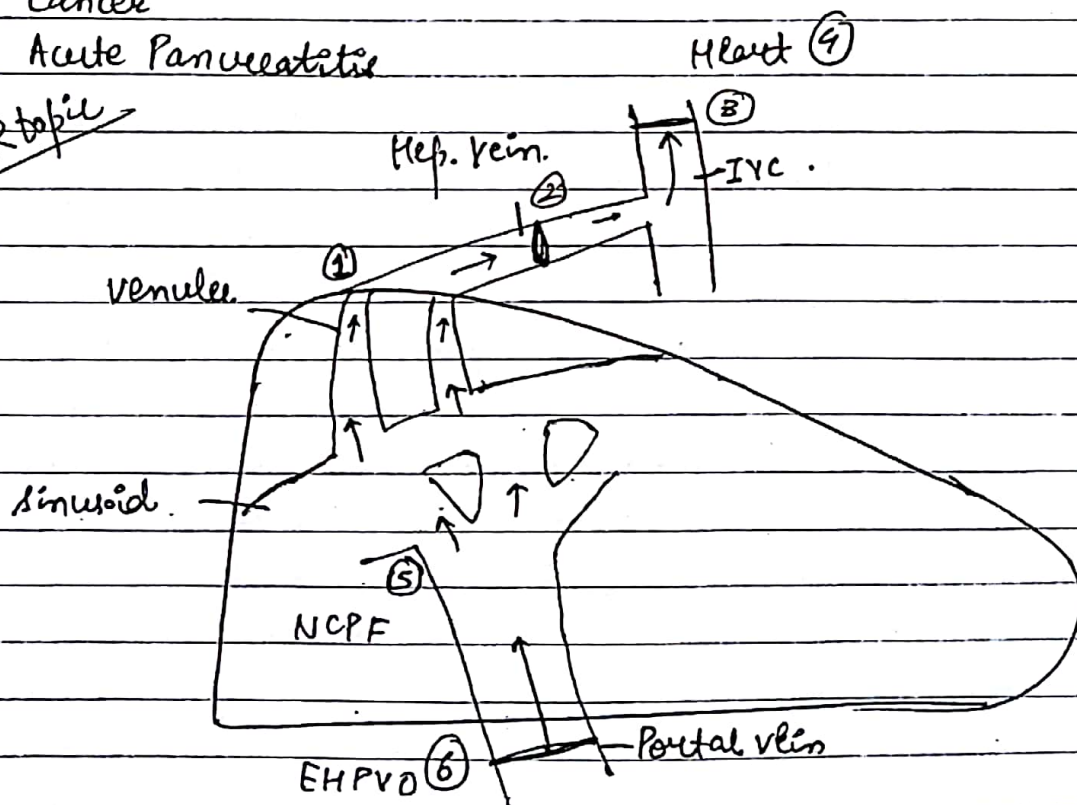 Cancer
Acute Pancreatitis
Heart ④
topic
③
Hep. vein.
IVC .
②
①
venule
sinusoid.
⑤
NCPF
Portal vein
EHPVO ⑥